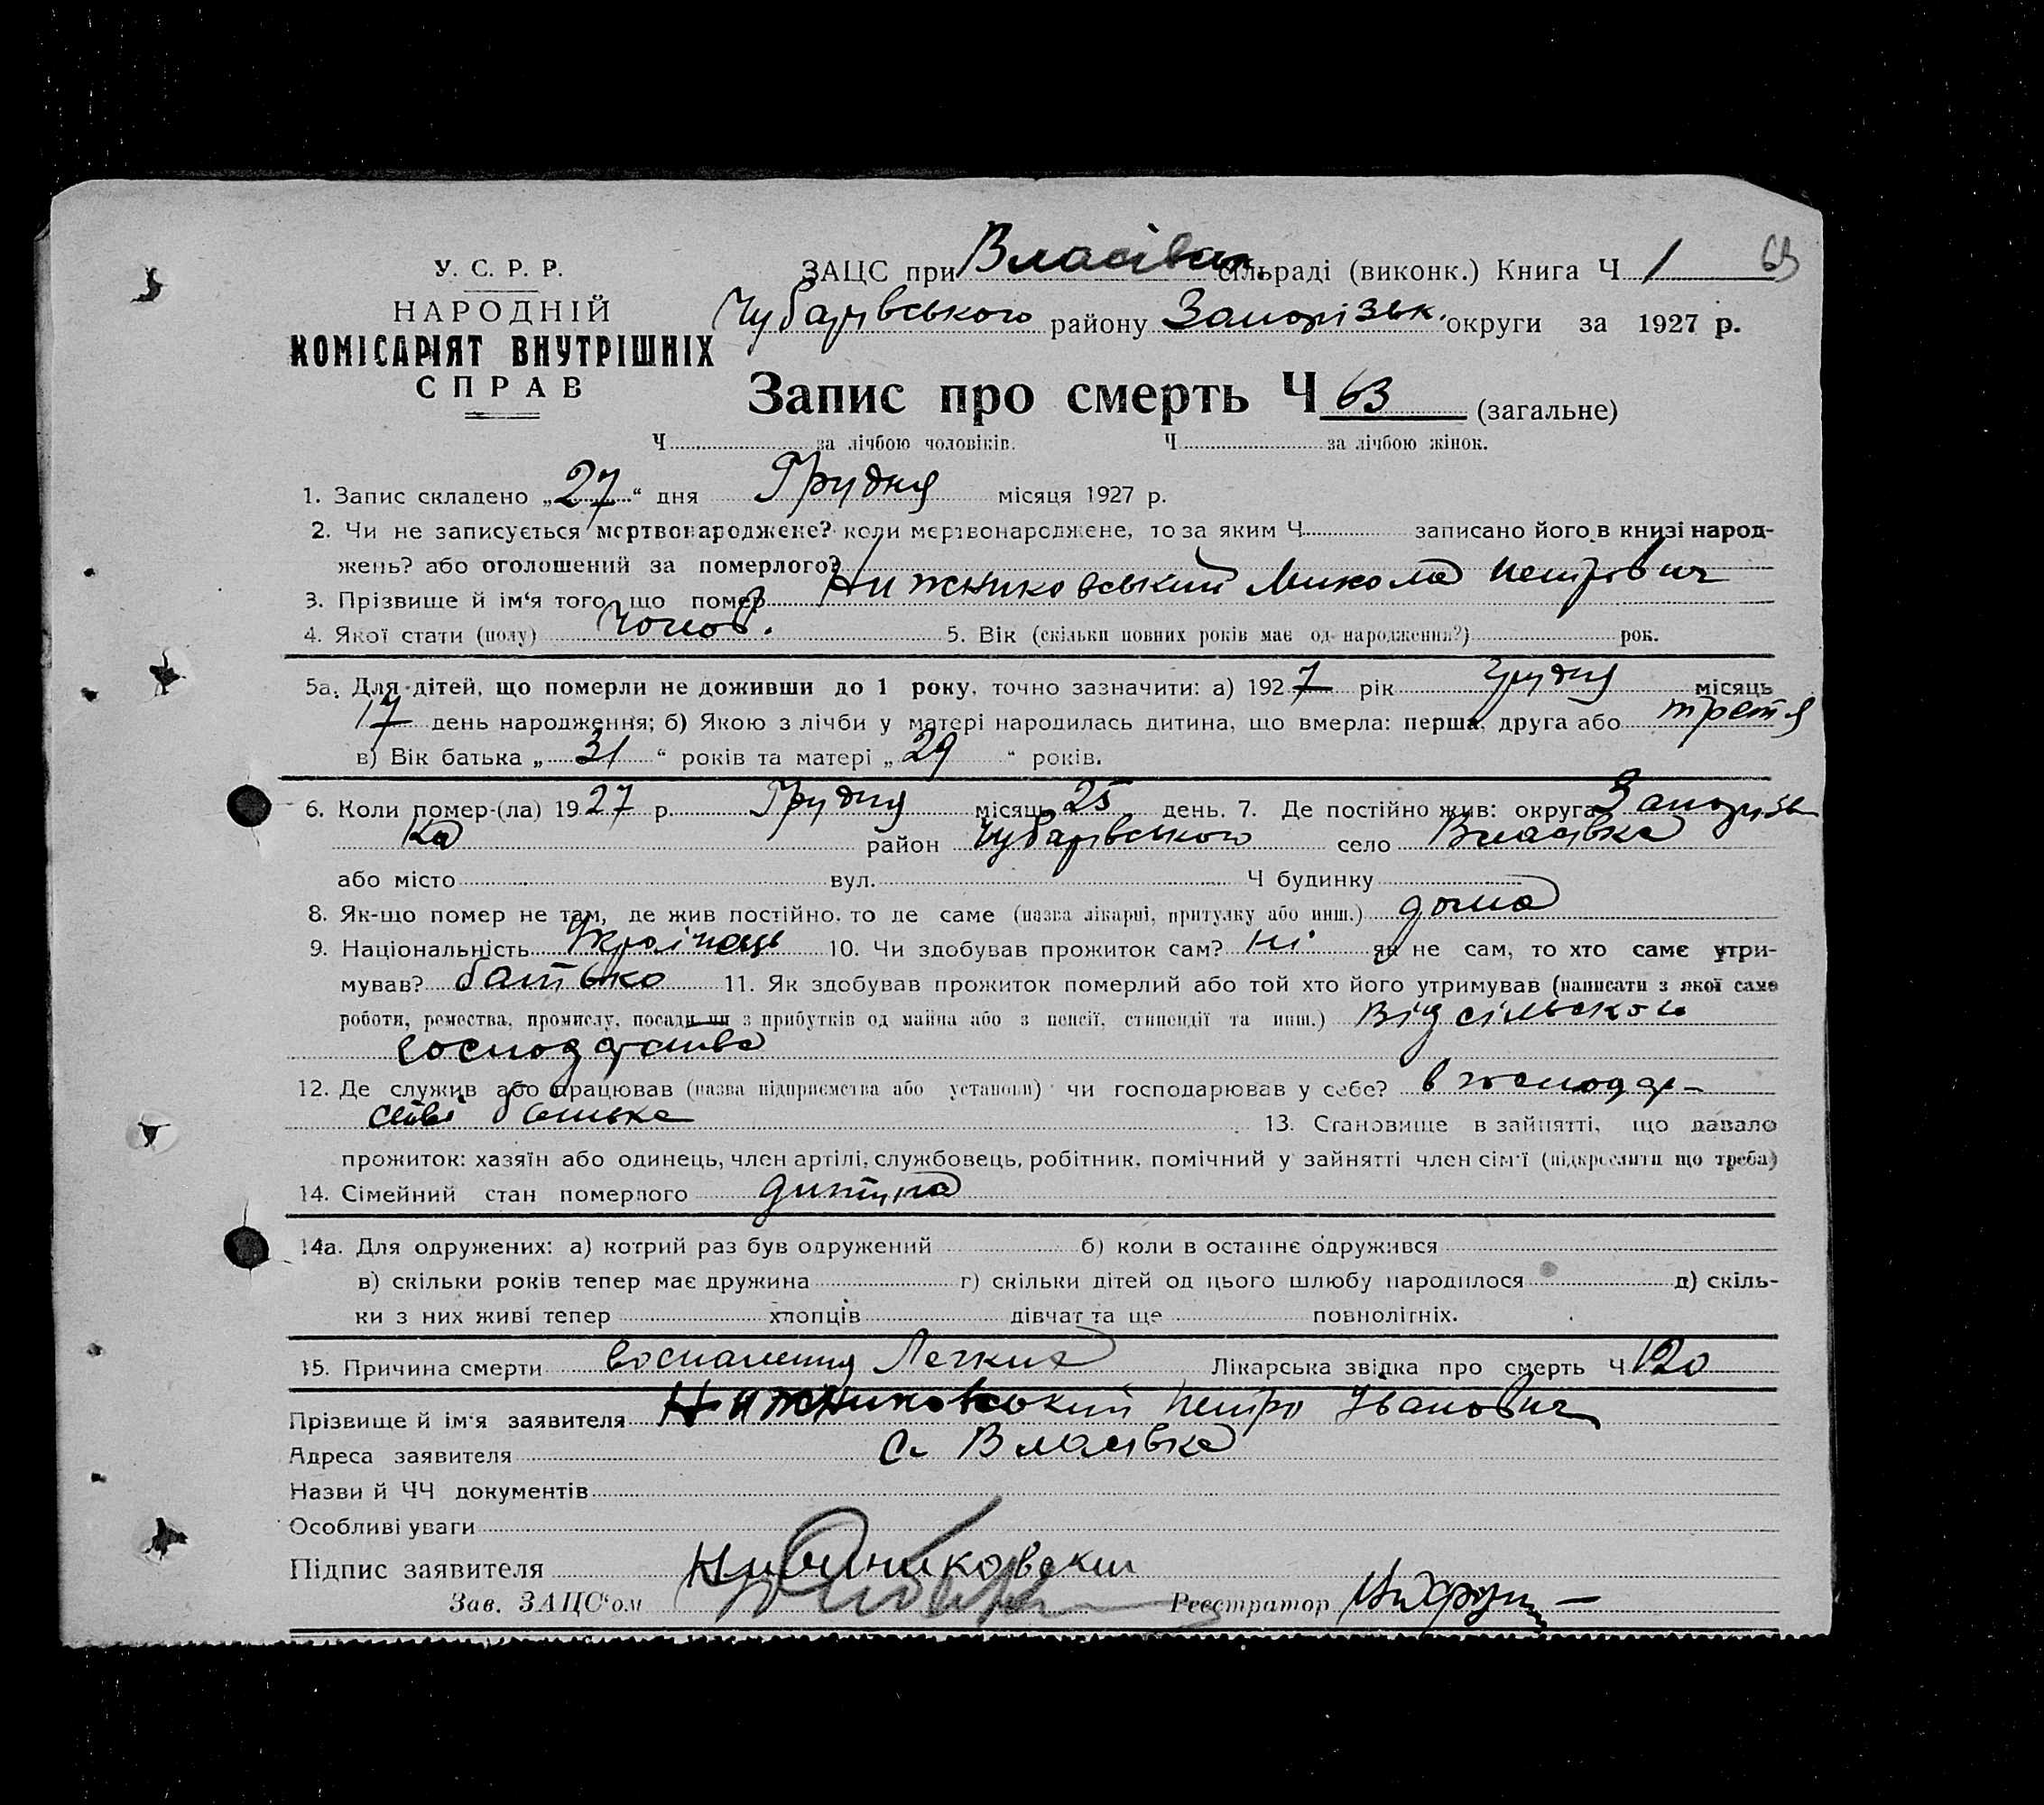 У. С. Р. Р.
НАРОДНІЙ
КОМІСАРІЯТ ВНУТРІШНІХ
СПРАВ
ЗАЦС при Власівськ. сільраді (виконк.) Книга Ч 1 63
Чубарівського району Запорізьк. округи за 1927 р.
Запис про смерть Ч 63 (загальне)
Ч за лічбою чоловіків. Ч за лічбою жінок.
1. Запис складено „27“ дня Грудня місяця 1927 р.
2. Чи не записується мертвонароджене? коли мертвонароджене, то за яким Ч записано його в книзі народ-
жень? або оголошений за померлого?
3. Прізвище й ім‘я того, що помер Нижниковський Микола Петрович
4. Якої стати (полу) Чолов. 5. Вік (скільки повних років має од народження?) рок.
5а. Для дітей, що померли не доживши до 1 року, точно зазначити: а) 1927 рік Грудня місяць
17 день народження; б) Якою з лічби у матері народилась дитина, що вмерла: перша, друга або третя
в) Вік батька „31“ років та матері „29“ років.
6. Коли помер-(ла) 1927 р. Грудня місяць 25 день. 7. Де постійно жив: округа Запорізь
ка район Чубарівського село Власівка
або місто вул. Ч будинку
8. Як-що помер не там, де жив постійно, то де саме (назва лікарні, притулку або инш.) дома
9. Національність Українець 10. Чи здобував прожиток сам? ні як не сам, то хто саме утри-
мував? батько 11. Як здобував прожиток померлий або той хто його утримував (написати з якої саме
роботи, ремества, промислу, посади чи з прибутків од майна або з пенсії, стипендії та инш.) Від сільського
господарства
12. Де служив або працював (назва підприємства або установи) чи господарював у себе? в господар-
стві батька 13. Становище в зайнятті, що давало
прожиток: хазяїн або одинець, член артілі, службовець, робітник, помічний у зайнятті член сім‘ї (підкреслити що треба)
14. Сімейний стан померлого дитина
14а. Для одружених: а) котрий раз був одружений б) коли в останнє одружився
в) скільки років тепер має дружина г) скільки дітей од цього шлюбу народилося д) скіль-
ки з них живі тепер хлопців дівчат та ще повнолітніх.
15. Причина смерти воспаления Легких Лікарська звідка про смерть Ч 120
Прізвище й ім‘я заявителя Нижниковський Петро Іванович
Адреса заявителя с. Власівка
Назви й ЧЧ документів
Особливі уваги
Підпис заявителя Нижниковский
Зав. ЗАЦС‘ом Реєстратор